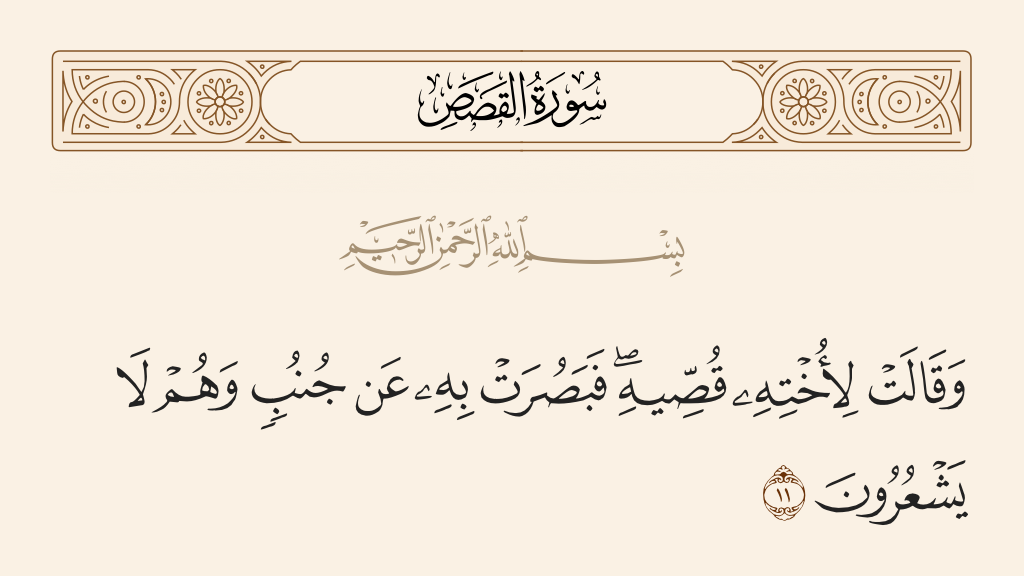 سُورَةُ القَصَصِ
بِسْمِ ٱللَّهِ ٱلرَّحْمَٰنِ ٱلرَّحِيمِ
وَقَالَتْ لِأُخْتِهِۦ قُصِّيهِۖ فَبَصُرَتْ بِهِۦ عَن جُنُبٍ وَهُمْ لَا
يَشْعُرُونَ ١١